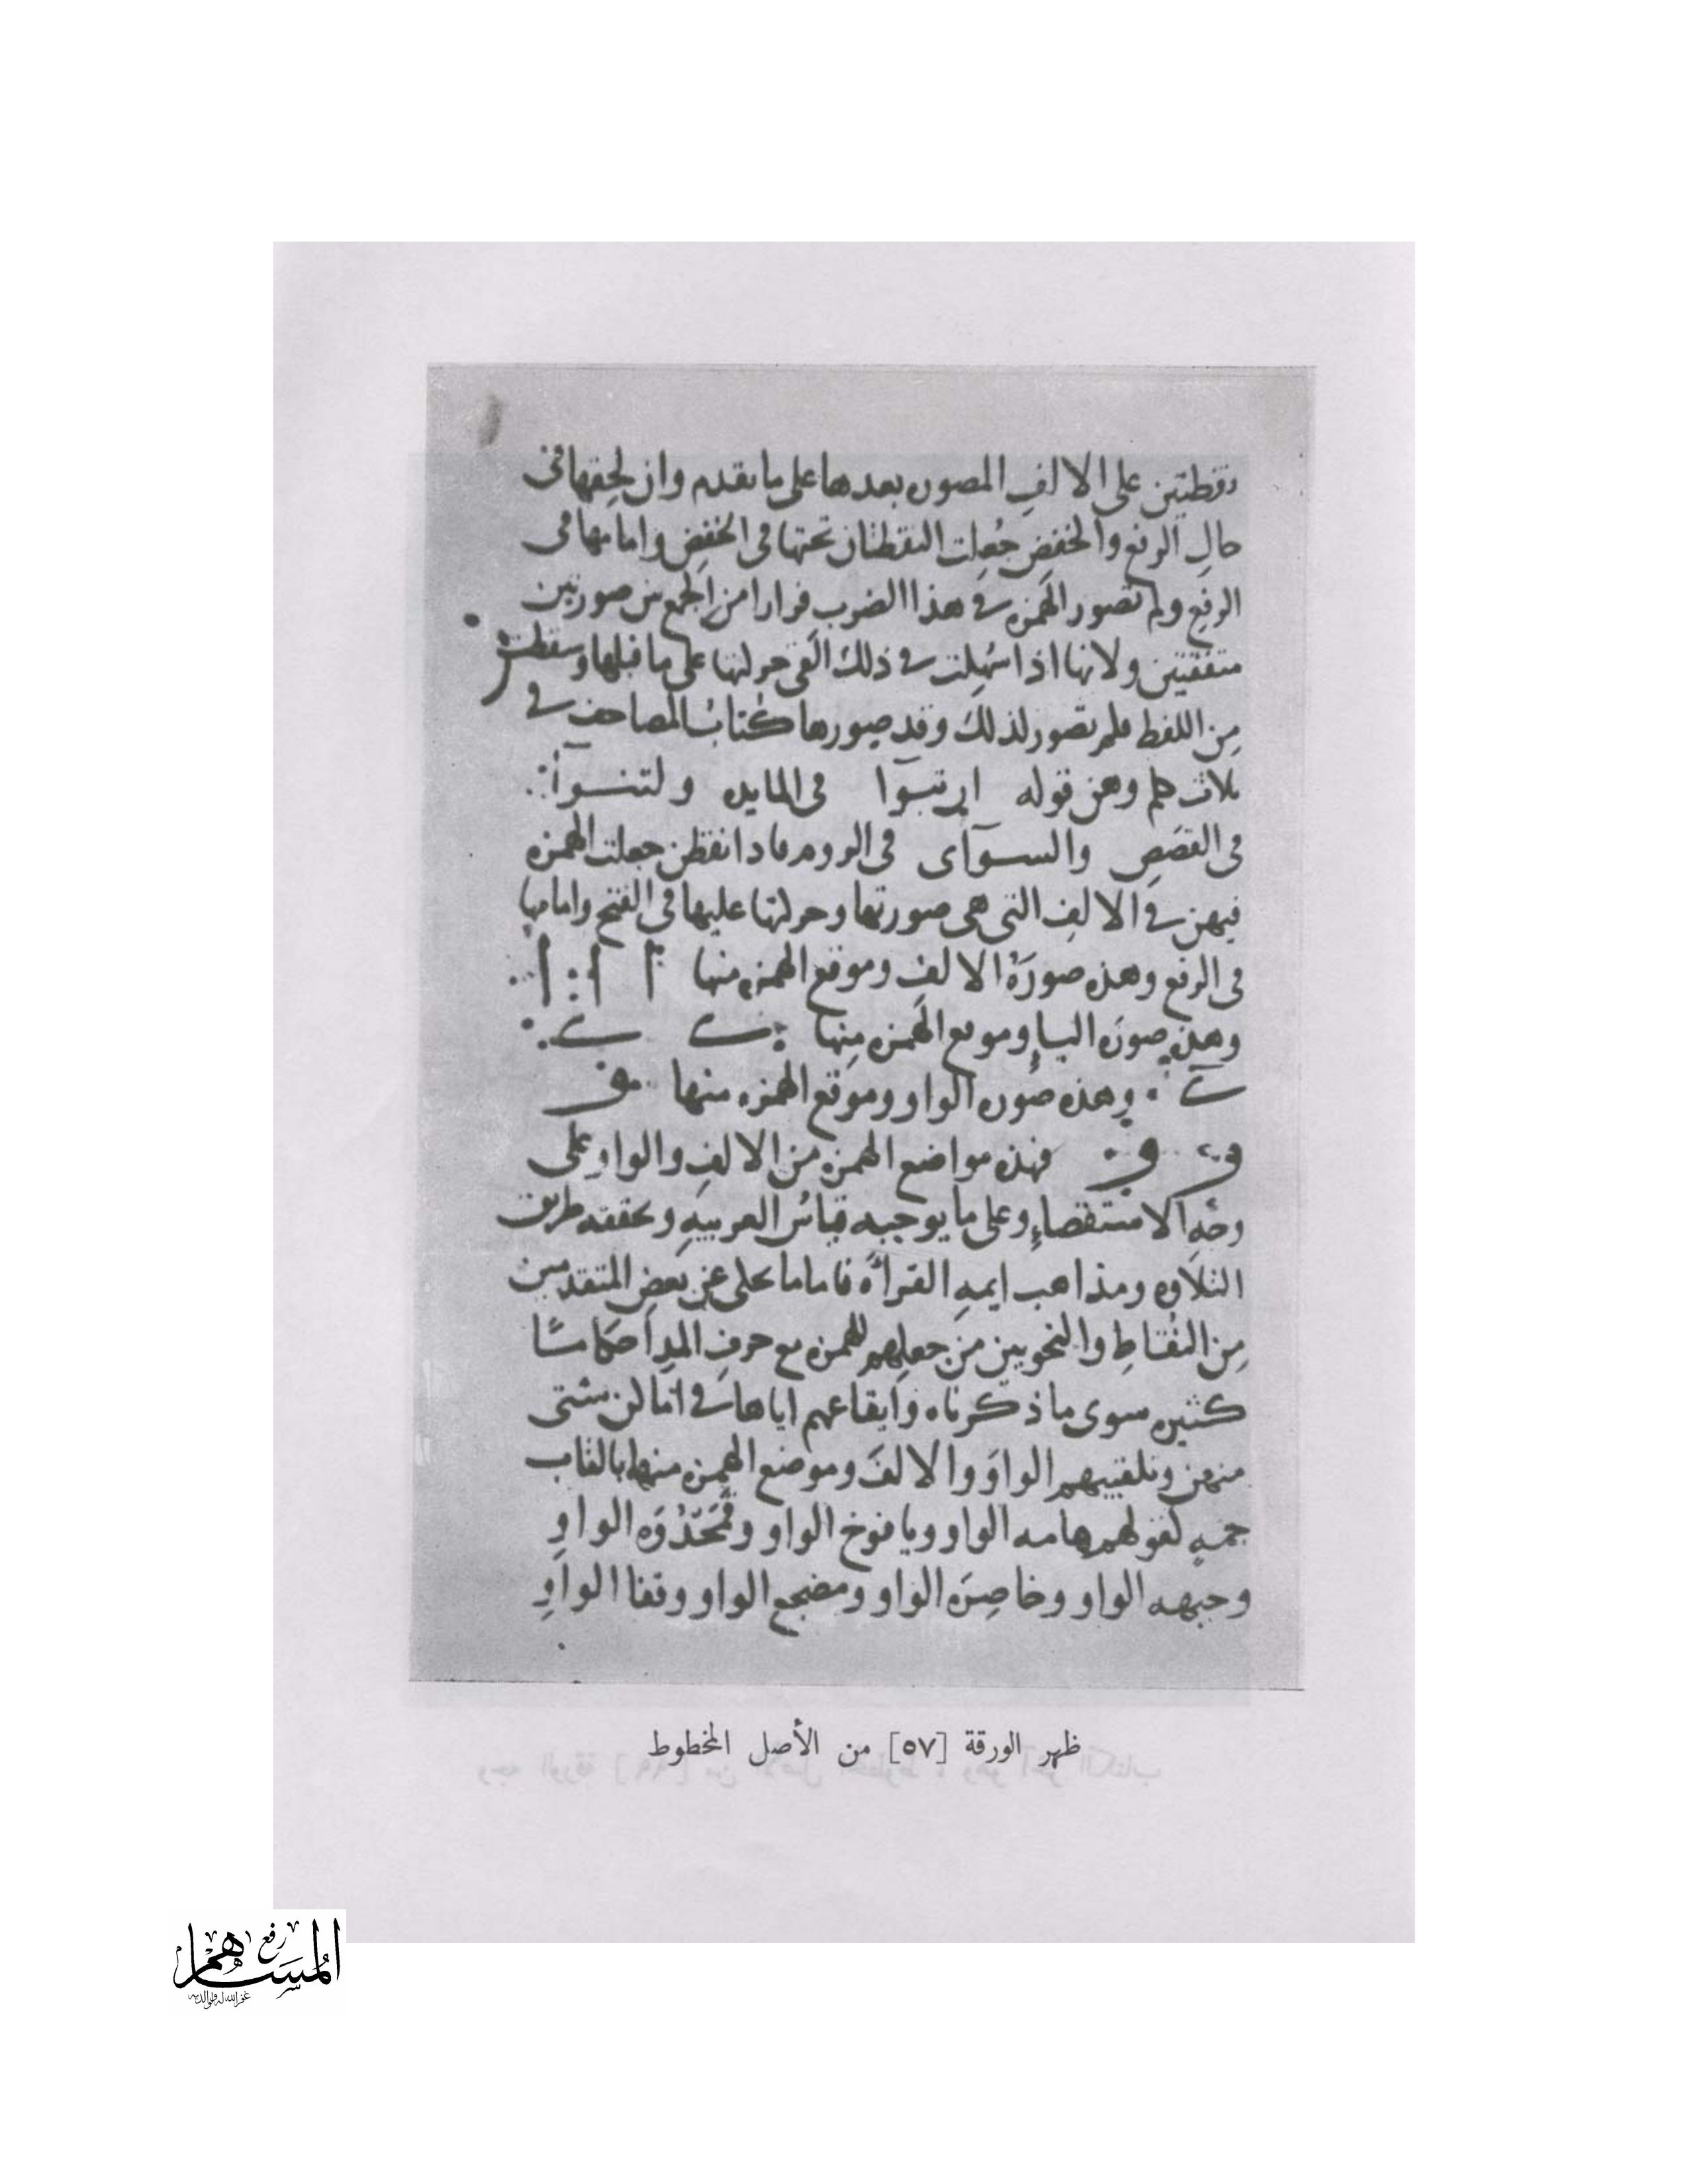 نقطتين على الالفِ المصوره بعدها على ما تقدم وان لحقها في
حالِ الرفع والخفضِ جُعِلت النقطتان تحتها في الخفضِ وامامها في
الرفعِ ولم تصور الهمزه في هذا الضربِ فرارا من الجمع بين صورتين
متفقتين ولانها اذا سُهِّلت في ذلك القى حركتها على ما قبلها وسقطت
مِن اللفظ فلم تصور لذلك وقد صورها كُتابُ المصاحف في
ثلاث كلم وهن قوله ان تبوآ في المايده ولتنوآ
في القصَصِ والسوآى في الروم فاذا نقطن جعلت الهمزه
فيهن في الالفِ التي هي صورتها وحركتها عليها في الفتح وامامها
في الرفع وهذه صورَةُ الالفِ وموقع الهمزه منها
وهذه صورَه الياءِ وموقع الهمزه مِنها
وهذه صُوره الواو وموقع الهمزه منها
فهذه مواضع الهمزه من الالفِ والواو على
وجهِ الاستقصاءِ وعلى ما يوجبه قياسُ العربيهِ وتحققه طريق
التلاوهِ ومذاهب ايمهِ القراءة فاما ما حكى عن بعضِ المتقدمين
مِن النُقاطِ والنحويين من جعلِهم للهمزه مع حرفِ المدِ احكاما
كثيره سوى ما ذكرناه وايقاعهم اياها في اماكن شتى
منهن وتلقيبهم الواوَ والالفَ وموضع الهمزه منهما بالقاب
جمهٍ كقولهم هامه الواو ويافوخ الواو وقَمَحْدُوَه الواوِ
وجبهه الواو وخاصِرَه الواو ومضجع الواو وقفا الواوِ
ظهر الورقة [٥٧] من الأصل المخطوط
رفع
المساهم
غفر الله له ولوالديه